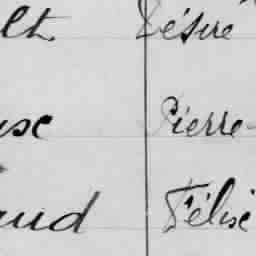 lt. Désiré
use Pierre-
aud Félise